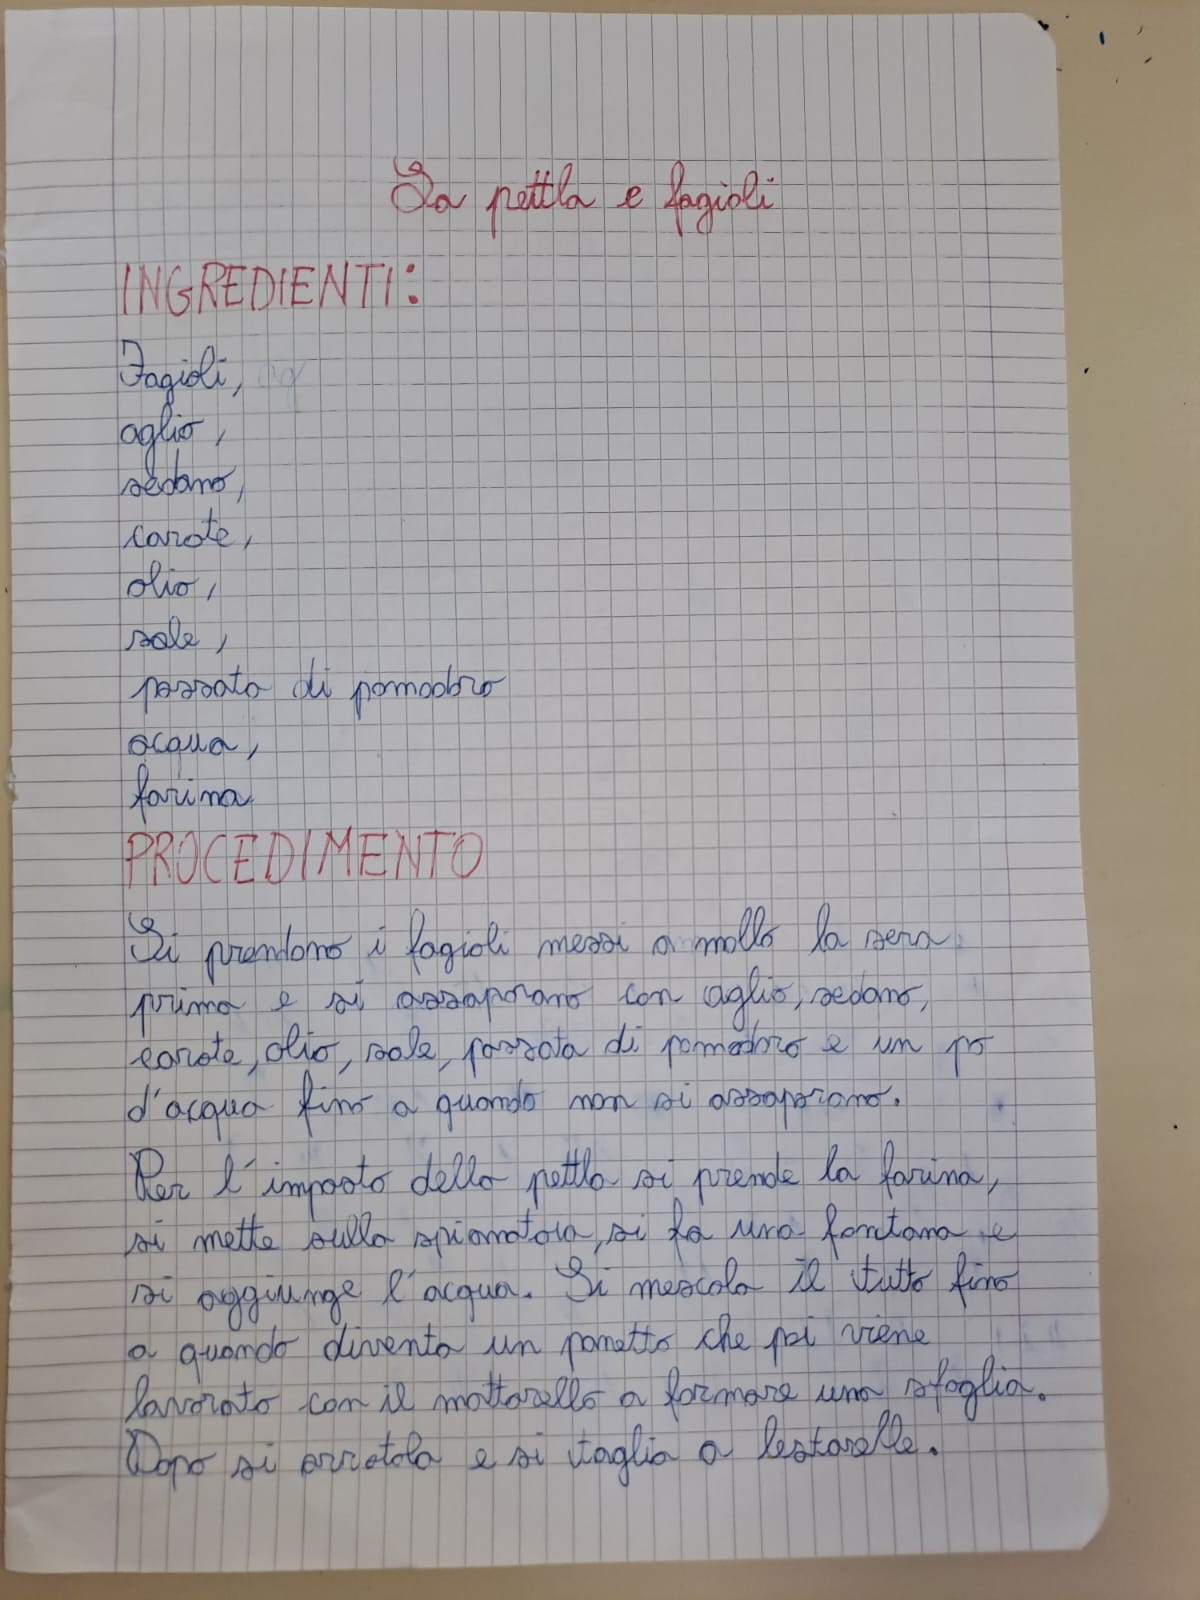 La pettla e fagioli
INGREDIENTI:
Fagioli,
aglio,
sedano,
carote,
olio,
sale,
passata di pomodoro
acqua,
farina
PROCEDIMENTO
Si prendono i fagioli messi a mollo la sera
prima e si assaporano con aglio, sedano,
carote, olio, sale, passata di pomodoro e un po
d'acqua fino a quando non si assaporano.
Per l'impasto della pettla si prende la farina,
si mette sulla spianatoia, si fa una fontana e
si aggiunge l'acqua. Si mescola il tutto fino
a quando diventa un panetto che poi viene
lavorato con il mattarello a formare una sfoglia.
Dopo si arrotola e si taglia a